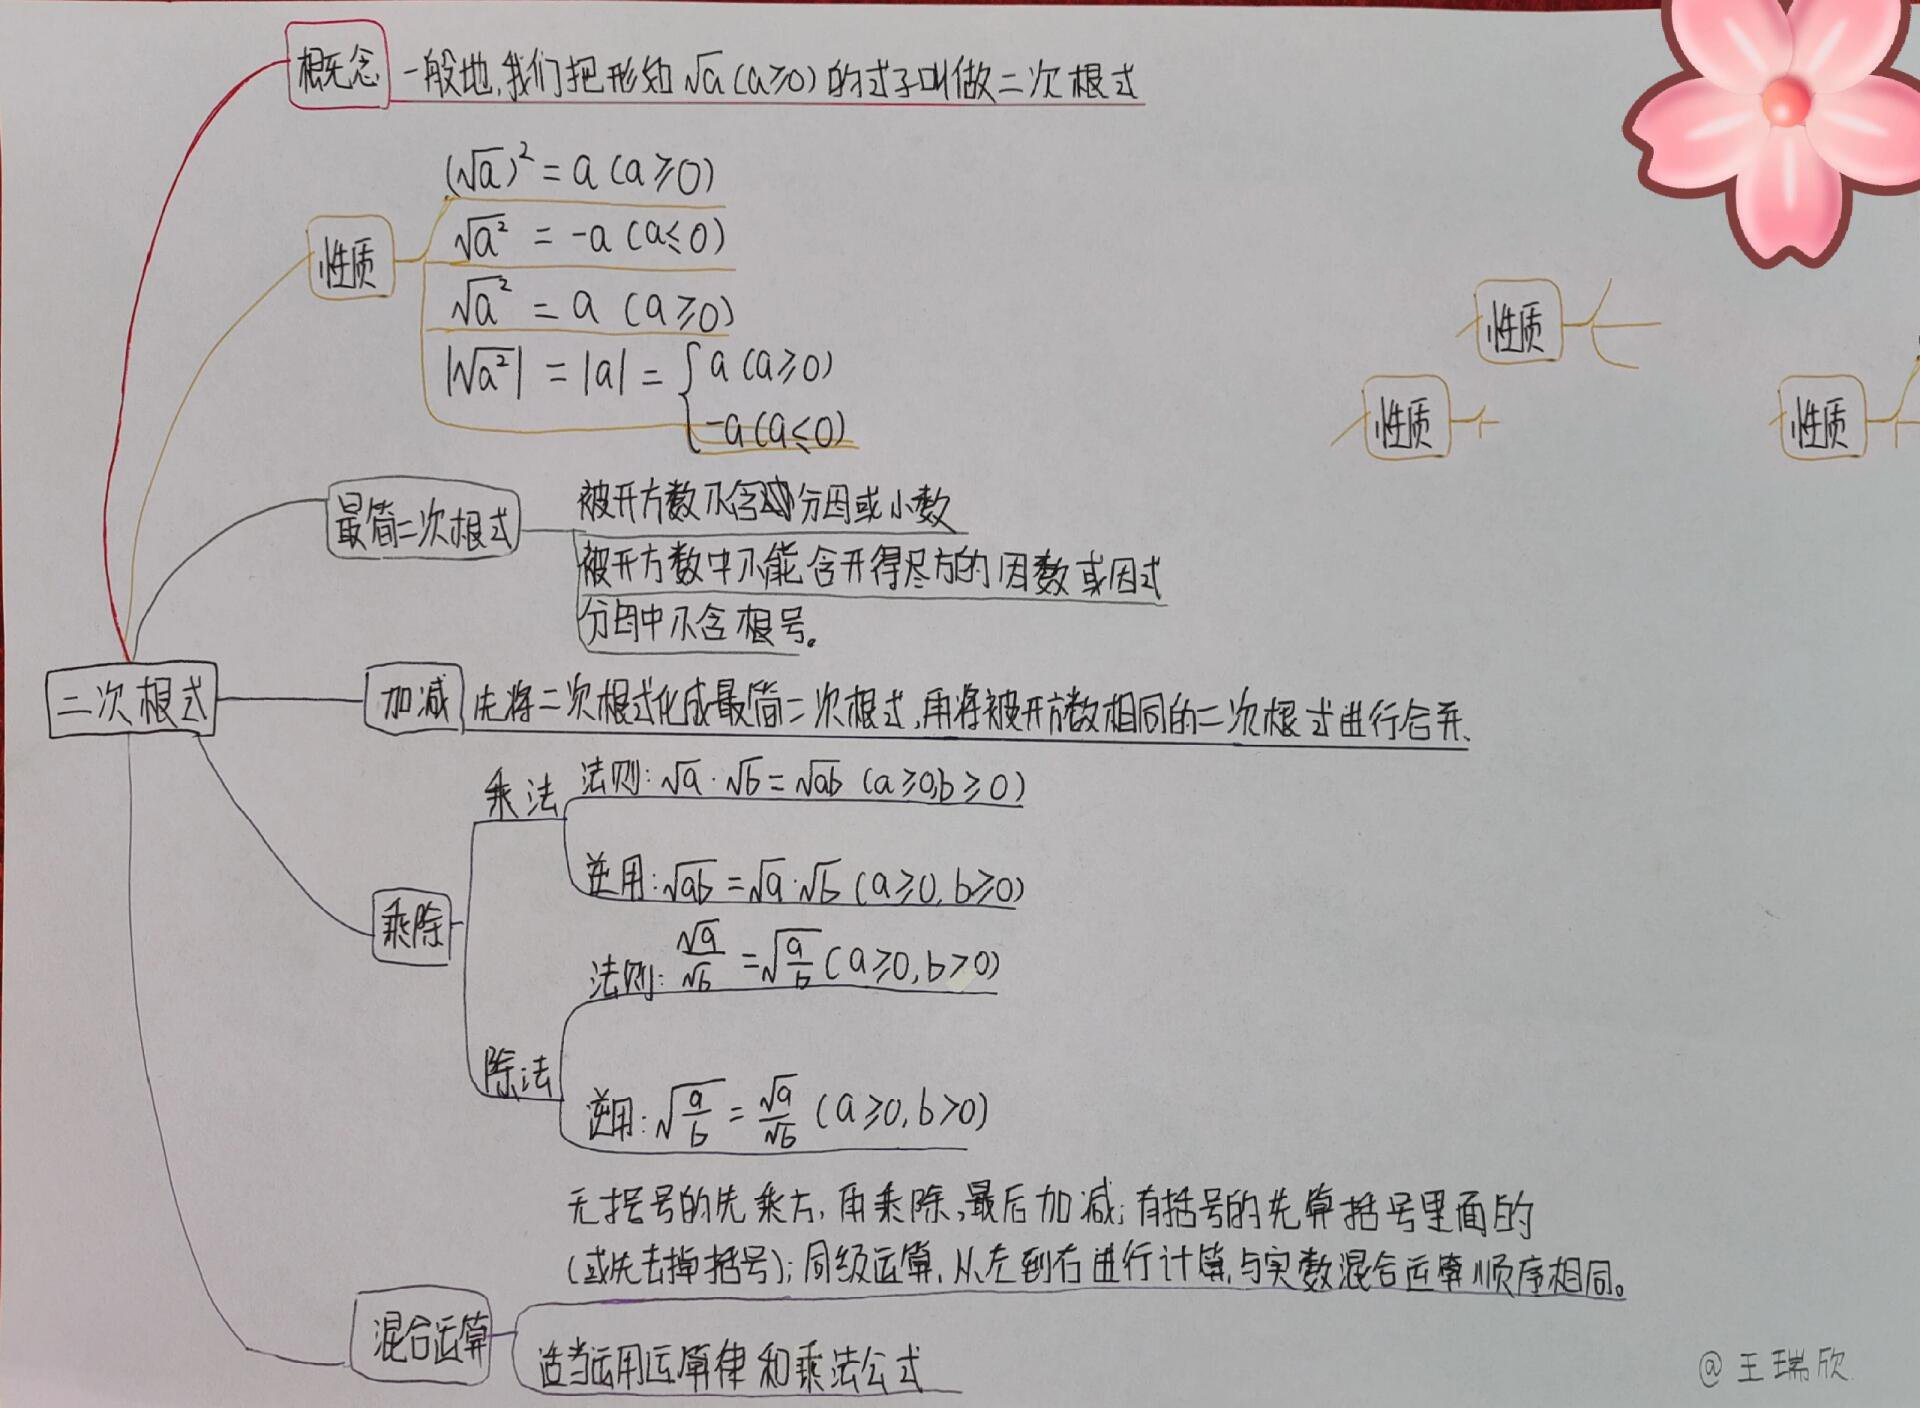 概念 一般地,我们把形如√a(a≥0)的式子叫做二次根式
性质
(√a)²=a(a≥0)
√a²=-a(a≤0)
√a²=a(a≥0)
|√a²|=|a|={a(a≥0)
-a(a≤0)
性质
性质
性质
最简二次根式
被开方数不含分因或小数
被开方数中不能含开得尽方的因数或因式
分母中不含根号。
二次根式
加减 先将二次根式化成最简二次根式,再将被开方数相同的二次根式进行合并.
乘除
乘法
法则:√a·√b=√ab(a≥0,b≥0)
逆用:√ab=√a·√b(a≥0,b≥0)
除法
法则:√a/√b=√(a/b)(a≥0,b>0)
逆用:√(a/b)=√a/√b(a≥0,b>0)
混合运算
无括号的先乘方,再乘除,最后加减;有括号的先算括号里面的
(或先去掉括号);同级运算,从左到右进行计算,与实数混合运算顺序相同。
适当运用运算律和乘法公式
@王瑞欣